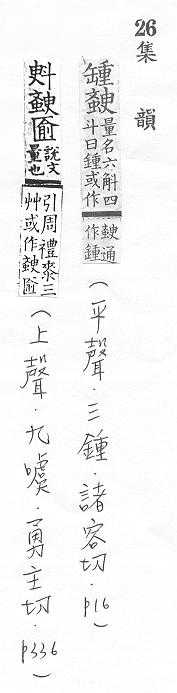 26 集 韻
斔 量名六斛四斗曰鍾或作斔通作鍾 (平聲．三鍾．諸容切．p16)
斞斔匬 說文量也引周禮桼三斞或作斔匬 (上聲．九噳．勇主切．p336)